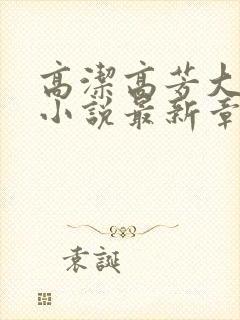 高潔高芳大
小說最新章
袁誕